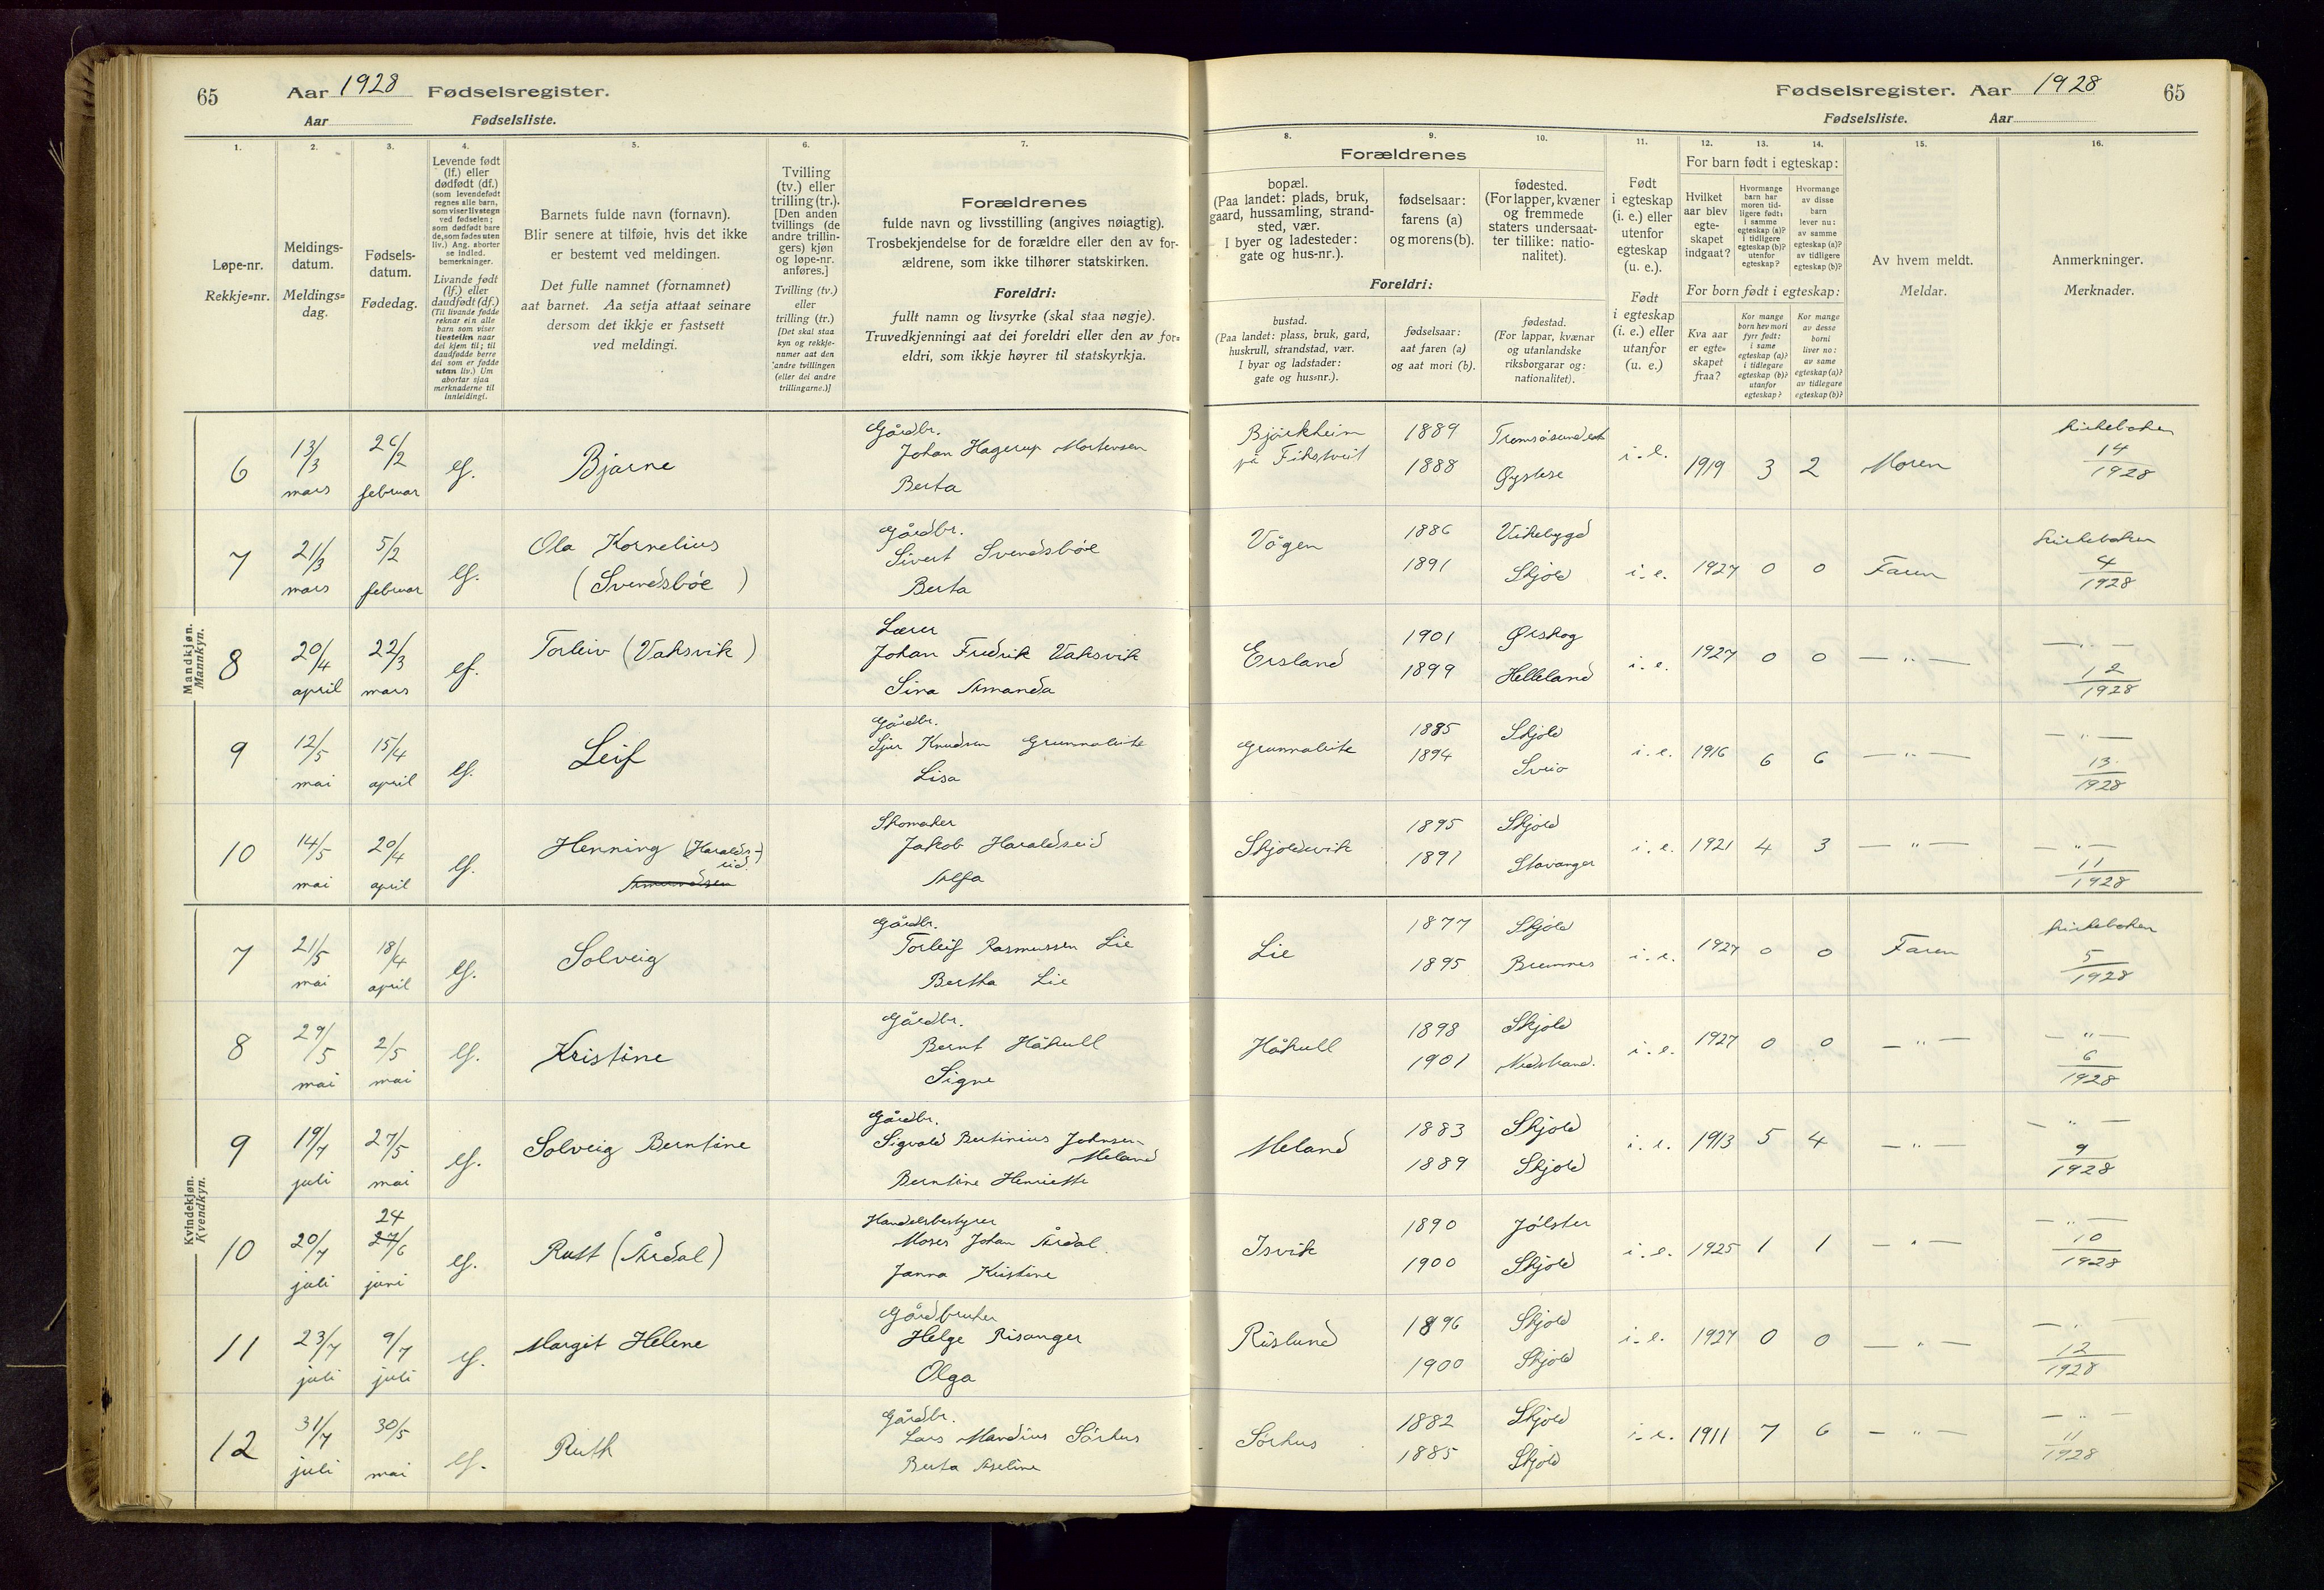 65 Aar 1928 Fødselsregister.
Aar Fødselsliste.
Fødselsregister. Aar 1928 65
Fødselsliste. Aar
1. 2. 3. 4. 5. 6. 7. 8. 9. 10. 11. 12. 13. 14. 15. 16.
Løpe-nr.
Rekkje-nr.
Meldings-
datum.
Meldings-
dag.
Fødsels-
datum.
Fødedag.
Levende født
(lf.) eller
dødfødt (df.)
(som levendefødt
regnes alle barn,
som viser livstegn
ved fødselen;
som dødfødt bare
de, som fødes uten
liv.) Ang. aborter
se indled.
bemerkninger.
Livande født
(lf.) eller
daudfødt (df.)
(Til livande fødde
reknar ein alle
barn som viser
livsteikn naar
dei kjem til; til
daudfødde berre
dei som er fødde
utan liv.) Um
abortar sjaa
merknaderne til
innleidingi.
Barnets fulde navn (fornavn).
Blir senere at tilføie, hvis det ikke
er bestemt ved meldingen.
Det fulle namnet (fornamnet)
aat barnet. Aa setja attaat seinare
dersom det ikkje er fastsett
ved meldingi.
Tvilling
(tv.) eller
trilling (tr.).
[Den anden
tvillings (de
andre trillin-
gers) kjøn
og løpe-nr.
anføres.]
Tvilling (tv.)
eller
trilling (tr.)
[Det skal staa
kyn og rekkje-
numer aat den
andre tvillingen
(eller dei andre
trillingarne.)]
Forældrenes
fulde navn og livsstilling (angives nøiagtig).
Trosbekjendelse for de forældre eller den av for-
ældrene, som ikke tilhører statskirken.
Foreldri:
fullt namn og livsyrke (skal staa nøgje).
Truvedkjenningi aat dei foreldri eller den av for-
eldri, som ikkje høyrer til statskyrkja.
Forældrenes
bopæl.
(Paa landet: plads, bruk,
gaard, hussamling, strand-
sted, vær.
I byer og ladesteder:
gate og hus-nr.).
fødselsaar:
farens (a)
og morens (b).
fødested.
(For lapper, kvæner
og fremmede
staters undersaat-
ter tillike: natio-
nalitet).
Foreldri:
bustad.
(Paa landet: plass, bruk, gard,
huskrull, strandstad, vær.
I byar og ladstader:
gate og hus-nr.).
fødselsaar:
aat faren (a)
og aat mori (b).
fødestad.
(For lappar, kvænar
og utanlandske
riksborgarar og:
nationalitet).
Født
i egteskap
(i. e.) eller
utenfor
egteskap
(u. e.).
Født
i egteskap
(i. e.) eller
utanfor
(u. e.)
For barn født i egteskap:
Hvilket
aar blev
egte-
skapet
indgaat?
Hvormange
barn har
moren tid-
ligere født:
i samme
egteskap (a)?
i tidligere
egteskap (b)?
utenfor
egteskap?
Hvormange
av disse
barn
lever nu:
av samme
egteskap (a)?
av tidligere
egteskap (b)?
For born født i egteskap:
Kva aar
er egte-
skapet
fraa?
Kor mange
born hev mori
fyrr født:
i same
egteskap (a)?
i tidlegare
egteskap (b)?
utanfor
egteskap?
Kor mange
av desse
borni
liver no:
av same
egteskap (a)?
av tidlegare
egteskap (b)?
Av hvem meldt.
Meldar.
Anmerkninger.
Merknader.
Mandkjøn.
Mannkyn.
6 13/3 mars 26/2 februar lf. Bjarne
Gårdbr.
Johan Hagerup Mortensen
Berta
Bjørkheim 1889 Tromsøsundet
på Fikstveit 1888 Øystese
i. e. 1919 3 2 Moren kirkeboken 14/1928
7 21/3 mars 5/2 februar lf. Ola Kornelius
(Svendsbøe)
Gårdbr.
Sivert Svendsbøe
Berta
Vågen 1886 Vikebygd
1891 Skjold
i. e. 1927 0 0 Faren kirkeboken 4/1928
8 20/4 april 22/3 mars lf. Torleiv (Vaksvik)
Lærer
Johan Fredrik Vaksvik
Sina Amanda
Ersland 1901 Ørskog
1899 Helleland
i. e. 1927 0 0 — " — — " — 12/1928
9 12/5 mai 15/4 april lf. Leif
Gårdbr.
Sjur Knudsen Grunnaleite
Lisa
Grunnaleite 1885 Skjold
1894 Sveio
i. e. 1916 6 6 — " — — " — 13/1928
10 14/5 mai 20/4 april lf. Henning (Haralds-
eid)
Amundsen
Skomaker
Jakob Haraldseid
Alfa
Skjoldevik 1895 Skjold
1891 Stavanger
i. e. 1921 4 3 — " — — " — 11/1928
Kvindekjøn.
Kvendkyn.
7 21/5 mai 18/4 april lf. Solveig
Gårdbr.
Torleif Rasmussen Lie
Bertha Lie
Lie 1877 Skjold
1895 Bremnes
i. e. 1927 0 0 Faren kirkeboken 5/1928
8 29/5 mai 2/5 mai lf. Kristine
Gårdbr.
Bernt Håkull
Signe
Håkull 1898 Skjold
1901 Nedstrand.
i. e. 1927 0 0 — " — — " — 6/1928
9 19/7 juli 27/5 mai lf. Solveig Berntine
Gårdbr.
Sigvald Bertinius Johnsen
Meland
Berntine Henriette
Meland 1883 Skjold
1889 Skjold
i. e. 1913 5 4 — " — — " — 9/1928
10 20/7 juli 24 27/6 juni lf. Rutt (Årdal)
Handelsbestyrer
Moses Johan Årdal.
Janna Kristine
Isvik 1890 Jølster
1900 Skjold
i. e. 1925 1 1 — " — — " — 10/1928
11 23/7 juli 9/7 juli lf. Margit Helene
Gårdbruker
Helge Risanger
Olga
Rislund 1896 Skjold
1900 Skjold
i. e. 1927 0 0 — " — — " — 12/1928
12 31/7 juli 30/5 mai lf. Ruth
Gårdbr.
Lars Mandius Sørhus
Berta Aseline
Sørhus 1882 Skjold
1885 Skjold
i. e. 1911 7 6 — " — — " — 11/1928